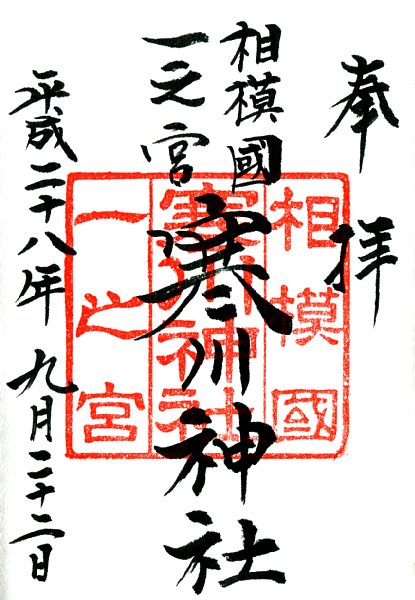 奉拝
相模國
一之宮
寒川神社
平成二十八年九月二十二日
相模國
寒川神社
一之宮